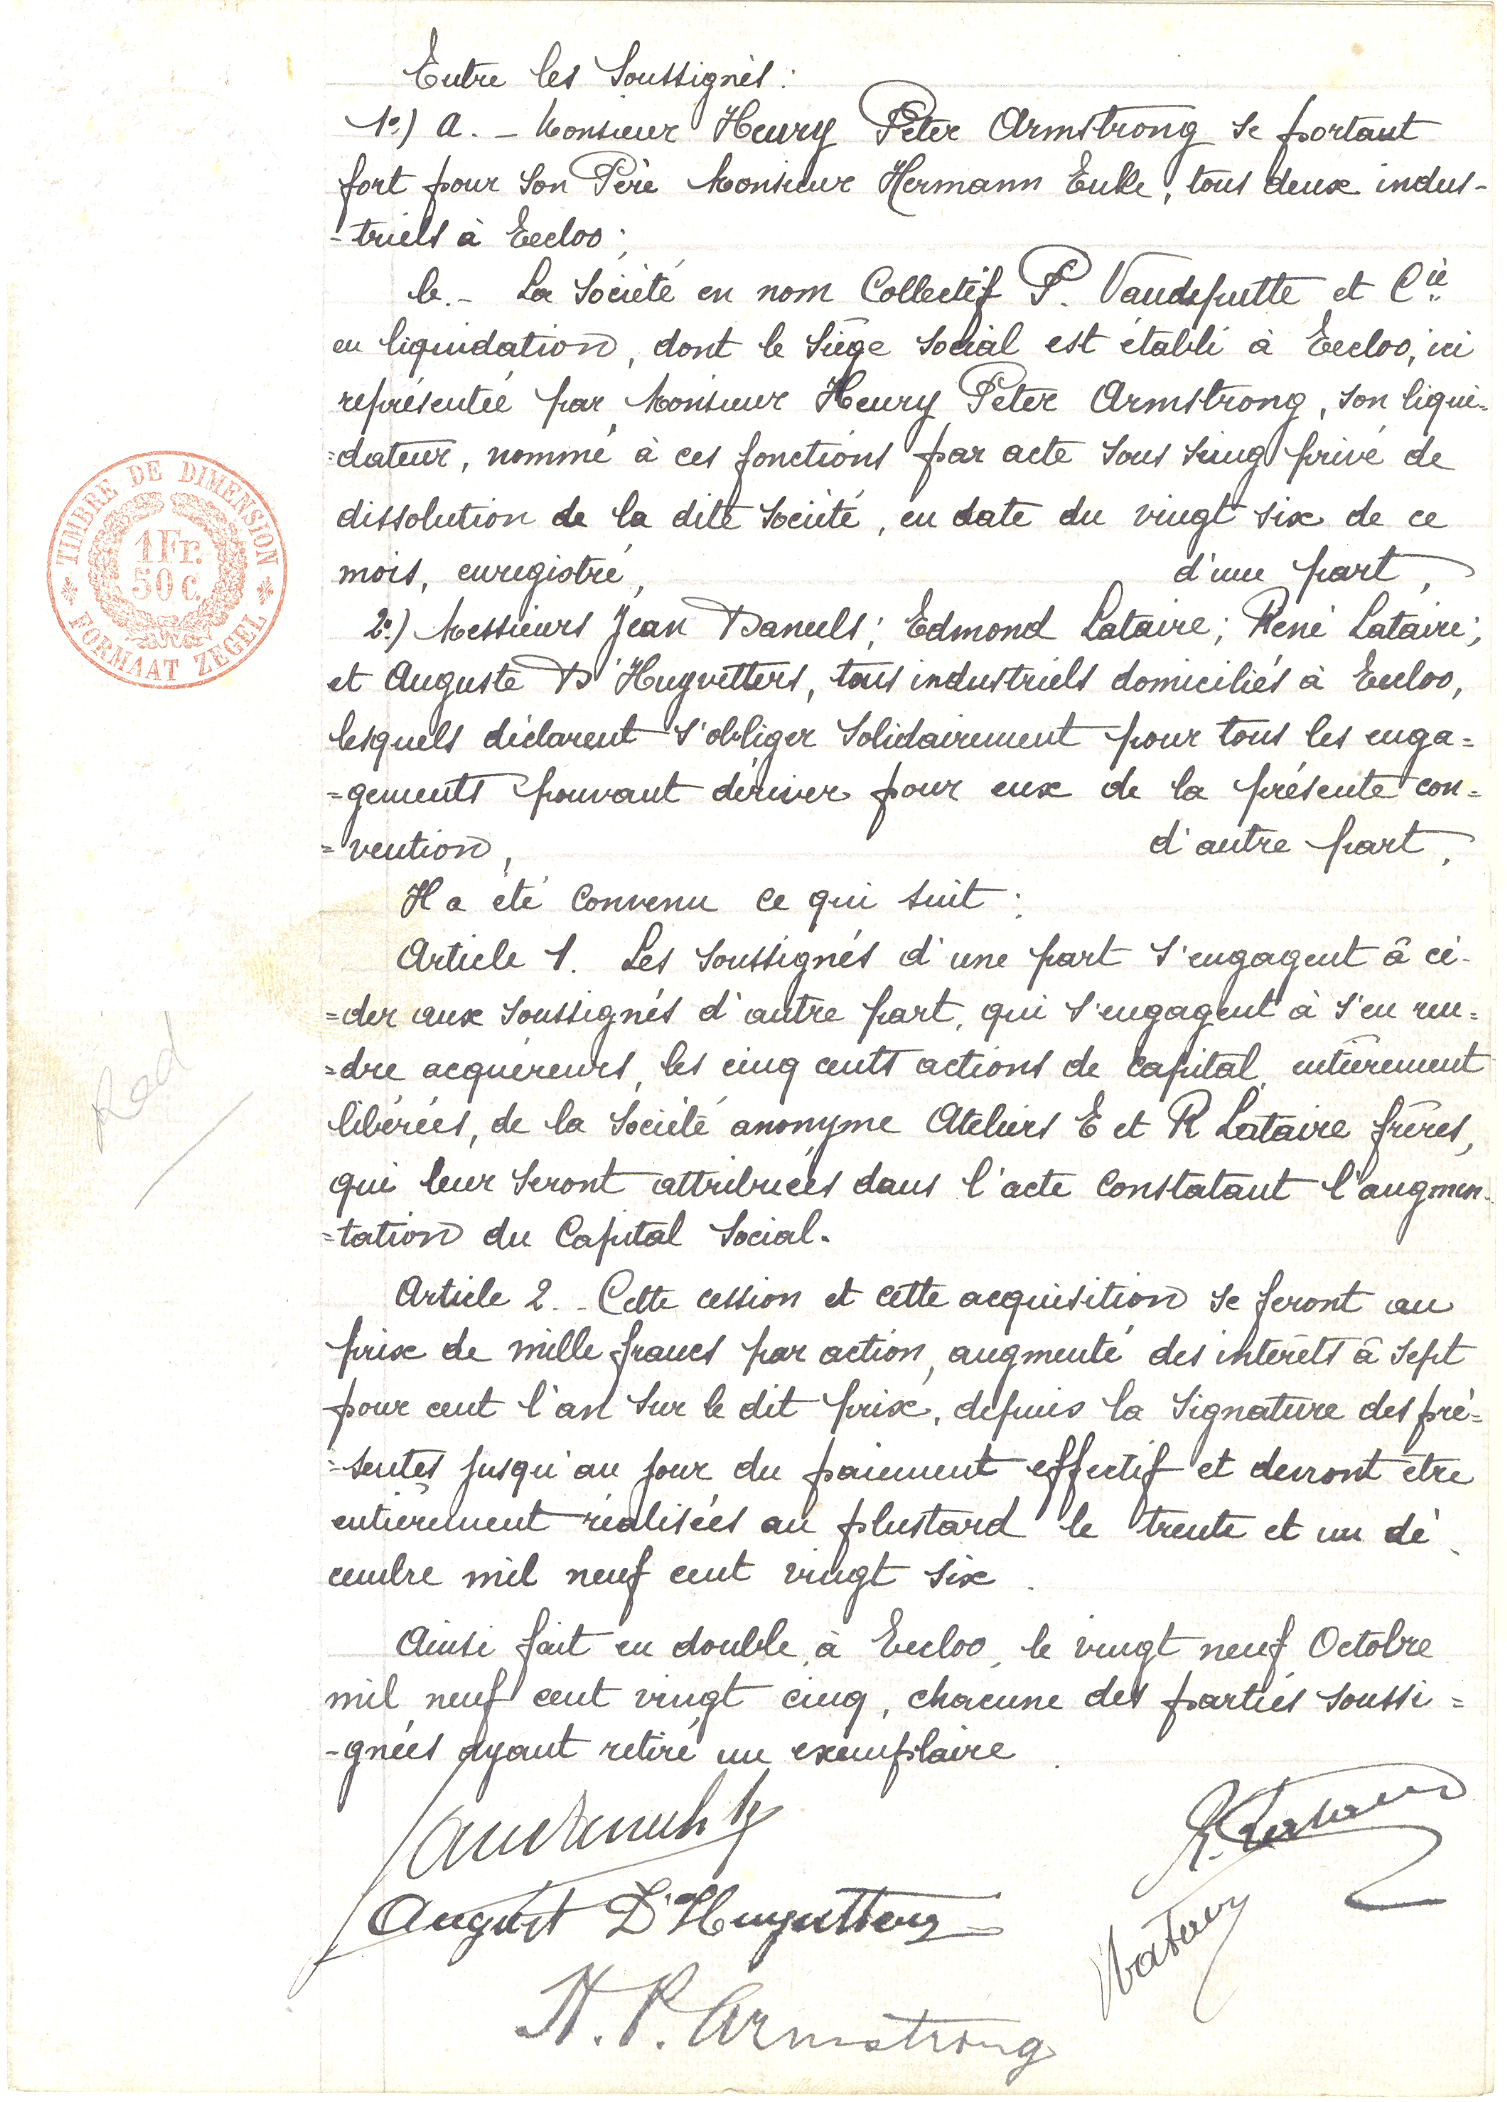 Entre les Soussignés :
1º) a. – Monsieur Henry Peter Armstrong se portant
fort pour son Père Monsieur Hermann Enke, tous deux indus-
-triels à Eecloo ;
b. – La Société en nom Collectif P. Vandeputte et Cie
en liquidation, dont le Siège Social est établi à Eecloo, ici
représentée par Monsieur Henry Peter Armstrong, son liqui=
=dateur, nommé à ces fonctions par acte sous seing privé de
dissolution de la dite Société, en date du vingt six de ce
mois, enregistré, d'une part,
2º) Messieurs Jean Daneels ; Edmond Lataire ; René Lataire ;
et Auguste D'Huyvetters, tous industriels domiciliés à Eecloo,
lesquels déclarent s'obliger Solidairement pour tous les enga=
=gements pouvant dériver pour eux de la présente con=
=vention, d'autre part,
Il a été Convenu ce qui suit :
Article 1. Les soussignés d'une part s'engagent à cé-
=der aux soussignés d'autre part, qui s'engagent à s'en ren=
=dre acquéreurs, les cinq cents actions de capital, entièrement
libérées, de la Société anonyme Ateliers E et R Lataire frères,
qui leur seront attribuées dans l'acte constatant l'augmen-
=tation du Capital Social.
Article 2. – Cette cession et cette acquisition se feront au
prix de mille francs par action, augmenté des intérêts à sept
pour cent l'an sur le dit prix, depuis la Signature des pré=
=sentes jusqu'au jour du paiement effectif et devront être
entièrement réalisées au plustard le trente et un dé
cembre mil neuf cent vingt six.
Ainsi fait en double, à Eecloo, le vingt neuf Octobre
mil neuf cent vingt cinq, chacune des parties soussi=
-gnées ayant retiré un exemplaire.
August D'Huyvetters
H. P. Armstrong
TIMBRE DE DIMENSION
1 Fr.
50 c.
FORMAAT ZEGEL